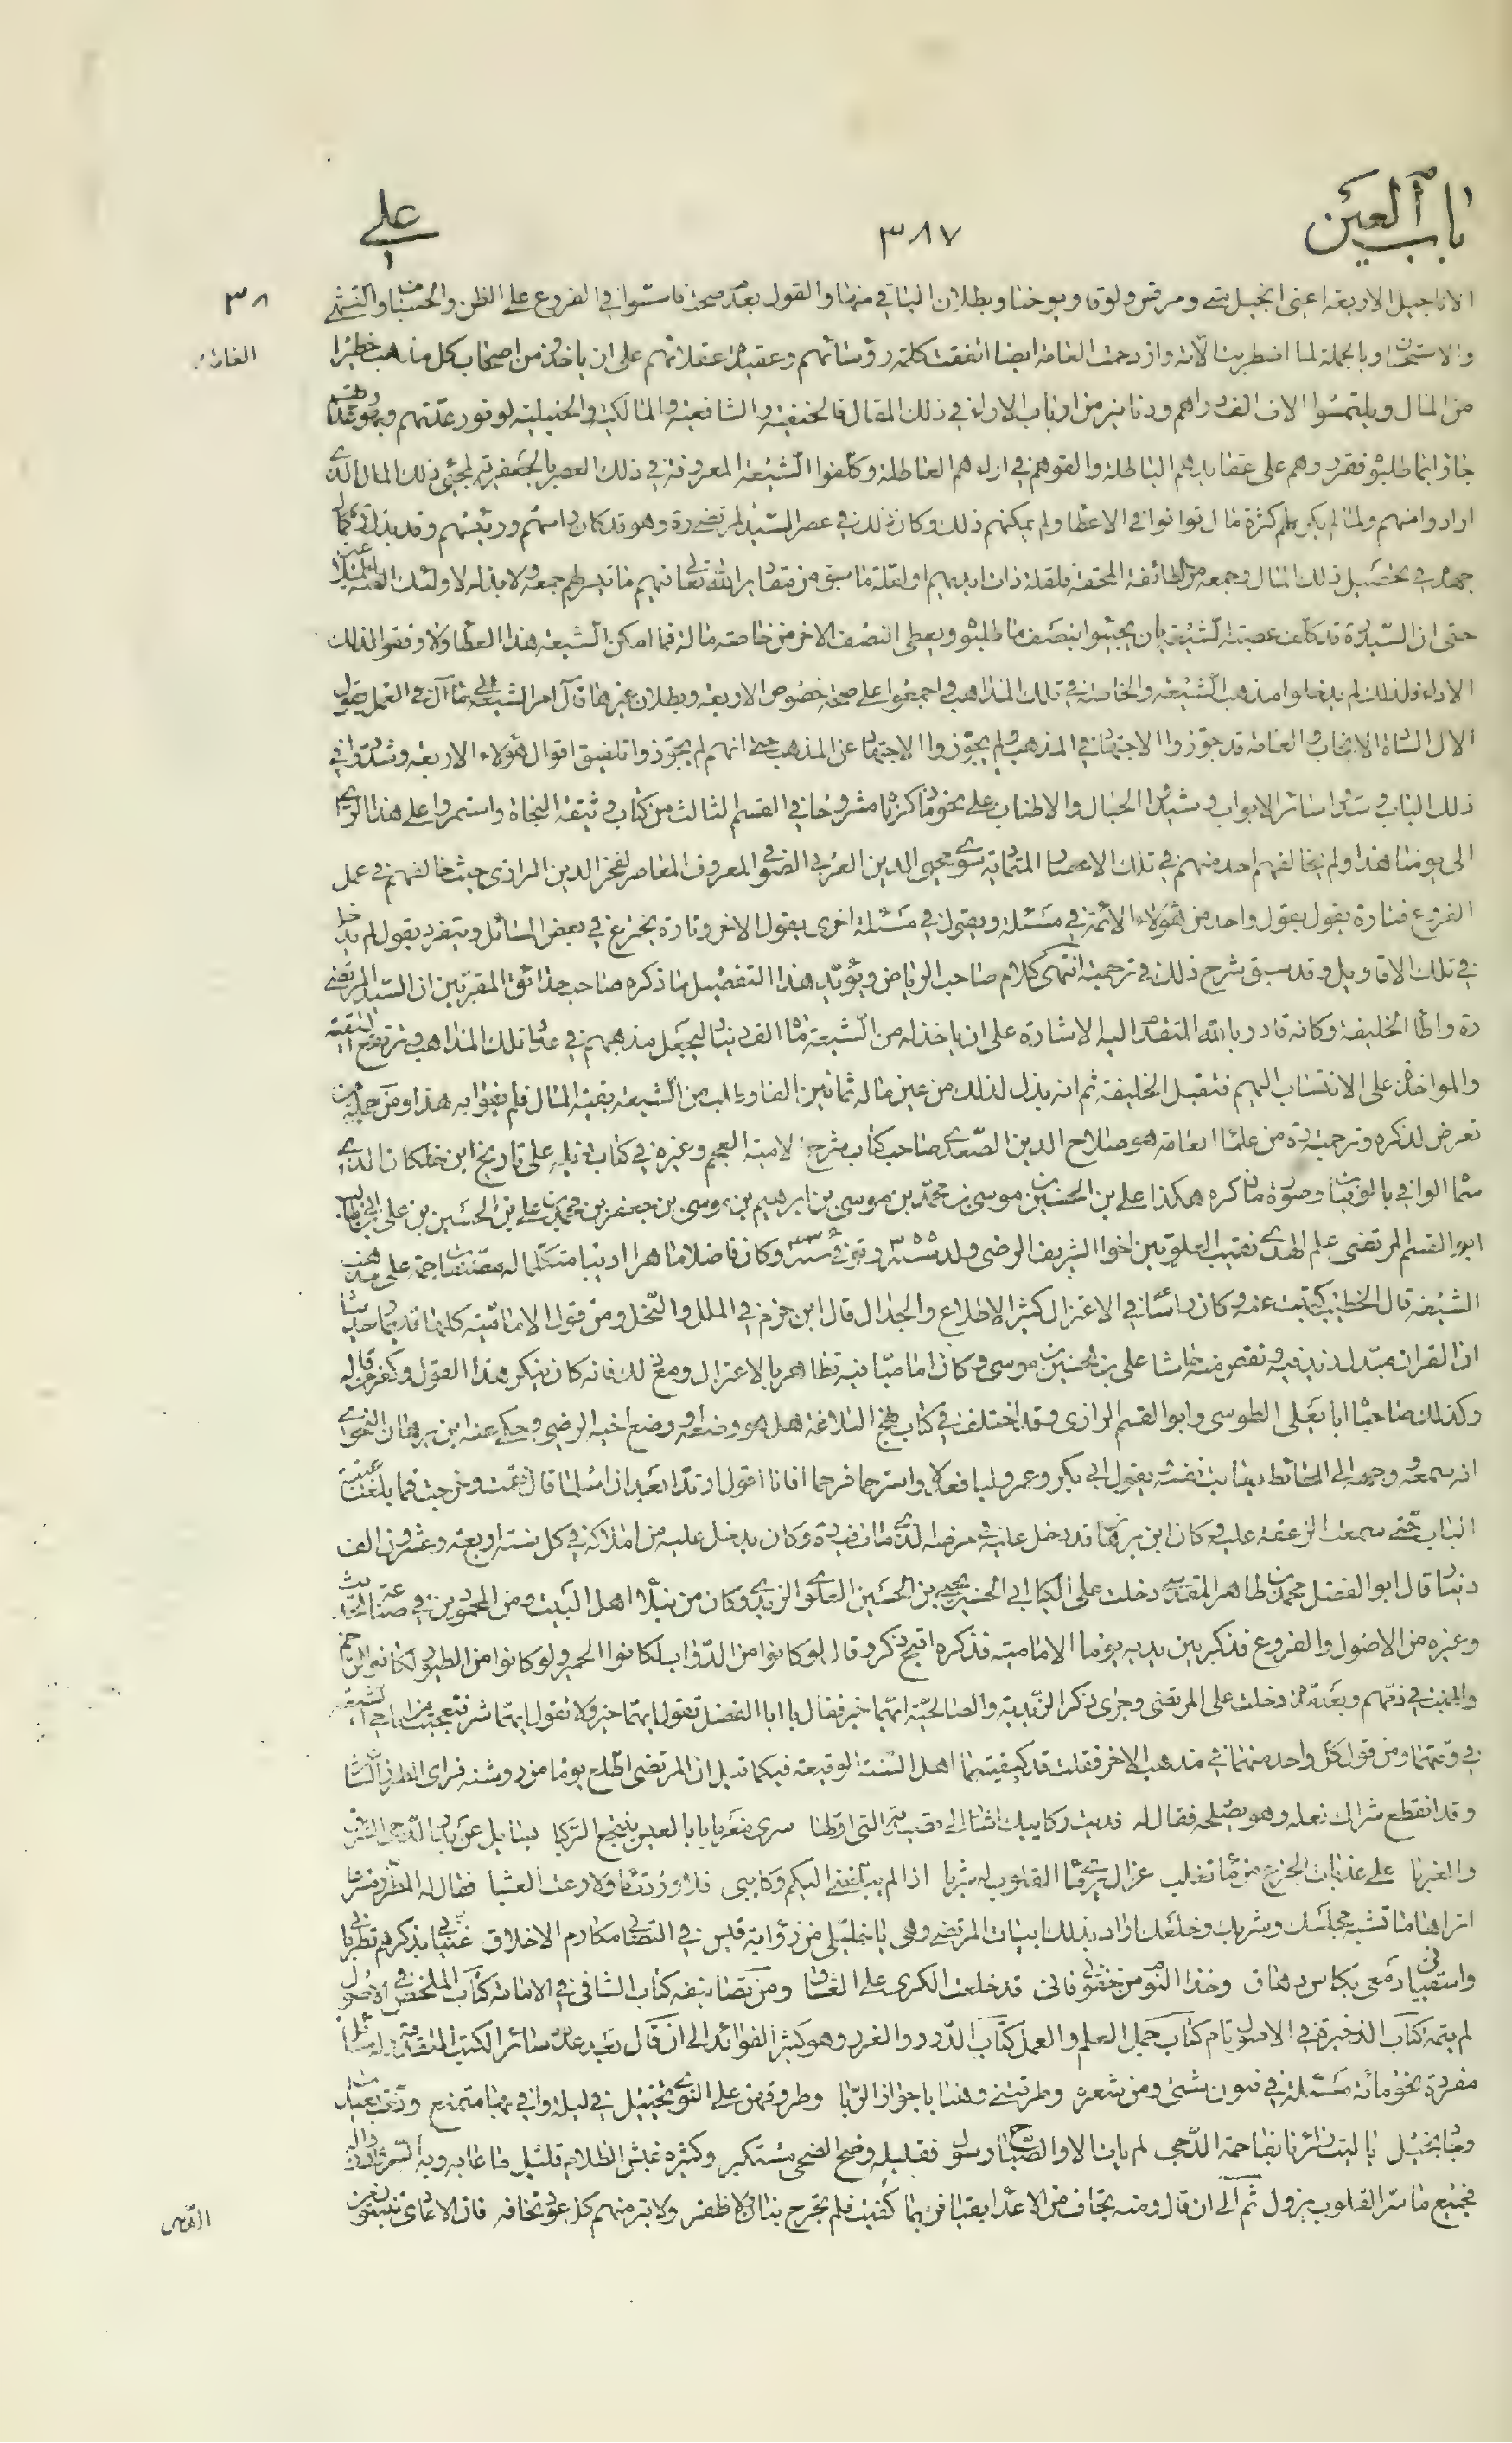 باب العين
٣٨٧
علي
الاناجيل الاربعة اعنى انجيل متى ومرقس ولوقا ويوحنا وبطلان الباقي منها والقول بعدم صحته فاسسوا في الفروع على الظن والحسبان والتشهي
والاستحسان وبالجملة لما اضطربت الآراء وازدحمت العامة ايضا اتفقت كلمة رؤسائهم وعقيدة عقلائهم على ان ياخذوا من اصحاب كل مذهب خطيرا
من المال ويلتمسوا الآف الف دراهم ودنانير من ارباب الاراء في ذلك المقال فالحنفية والشافعية والمالكية والحنبلية لوفور عدتهم
جاؤا بما طلبوه فقرروهم على عقايدهم الباطلة والقوهم في اراءهم العاطلة وكلفوا الشيعة المعروفة في ذلك العصر بالجعفرية لمجيئ ذلك المال الذي
ارادوا منهم ولما لم يكن لهم كثرة مال توانوا في الاعطاء ولم يمكنهم ذلك وكان ذلك في عصر السيد المرتضى ره وهو قد كان راسهم ورئيسهم وقد بذل كمال
جهده في تحصيل ذلك المال وجمعه من الطائفة المحقة فلقلة ذات ايديهم او لقلة ما سبق من تقدير الله تعالى فيهم ما تيسر لهم جمعه ولا بذله لاولئك
حتى ان السيد ره قد كلف عصبة الشيعة بان يجيبوا بنصف ما طلبوه ويعطى النصف الاخر من خاصة ماله فما امكن الشيعة هذا العطاء ولا وفقوا لذلك
الاداء فلذلك لم يدخلوا مذهب الشيعة والخاصة في تلك المذاهب واجمعوا على صحة خصوص الاربعة وبطلان غيرها فآل امر الشيعة الى ما آل في العمل بقول
الآل السادة الانجاب والعامة قد جوزوا الاجتهاد في المذهب ولم يجوزوا الاجتهاد عن المذهب حتى انهم لم يجوزوا تلفيق اقوال هؤلاء الاربعة وشددوا في
ذلك الباب وسدوا سائر الابواب وشيدوا الحبال والاطناب على نحو ما ذكرنا مشروحا في القسم الثالث من كتاب وثيقة النجاة واستمروا على هذا الراى
الى يومنا هذا ولم يخالفهم احد منهم في تلك الاعصار المتمادية سوى محيى الدين العربي الصوفي المعروف المعاصر لفخر الدين الرازى حيث خالفهم في عمل
الفروع فتارة يقول بقول واحد من هؤلاء الأئمة في مسئلة ويقول في مسئلة اخرى بقول الاخر وتارة يخترع في بعض المسائل ويتفرد بقول لم يدخل
في تلك الاقاويل وقد سبق شرح ذلك في ترجمته انتهى كلام صاحب الرياض ويؤيد هذا التفصيل ما ذكره صاحب حدائق المقربين ان السيد المرتضى
ره واطأ الخليفة وكانه قادر بالله المتقدم اليه الاشارة على ان ياخذ له من الشيعة مأة الف دينار ليجعل مذهبهم في عداد تلك المذاهب وترتفع التقية
والمواخذة على الانتساب اليهم فتقبل الخليفة ثم انه بذل لذلك من عين ماله ثمانين الفا وطلب من الشيعة بقية المال فلم يفوا به هذا ومن جملة من
تعرض لذكره وترجمته ره من علماء العامة هو صلاح الدين الصفدى صاحب كتاب شرح لامية العجم وغيره في كتاب ذيله على تاريخ ابن خلكان الذى
سماه الوافي بالوفيات وصورة ما ذكره هكذا على بن الحسين بن موسى بن محمد بن موسى بن ابرهيم بن موسى بن جعفر بن محمد بن على بن الحسين بن على بن ابى طالب
ابو القسم المرتضى علم الهدى نقيب العلويين اخو الشريف الرضى ولد سنة ٣٥٥ وتوفي سنة ٤٣٦ وكان فاضلا ماهرا اديبا متكلما له مصنفات جمة على مذهب
الشيعة قال الخطيب كتبت عنه وكان راسا في الاعتزال كثير الاطلاع والجدال قال ابن حزم في الملل والنحل ومن قول الامامية كلها قديما وحديثا
ان القران مبدل زيد فيه ونقص منه حاشا على بن الحسين بن موسى وكان اماميا فيه تظاهر بالاعتزال ومع ذلك فانه كان ينكر هذا القول وكفر من قاله
وكذلك صاحباه ابا يعلى الطوسى وابو القسم الرازى وقد اختلف في كتاب نهج البلاغة هل هو وضعه او وضع اخيه الرضى وحكى عنه ابن برهان النحوى
انه سمعه ووجهه الى الحائط يعاتب نفسه يقول ابى بكر وعمر وليا فعدلا واسترحما فرحما افانا اقول ارتدا بعد ان اسلما قال فقمت وخرجت فما بلغت عتبة
الباب حتى سمعت الزعقة عليه وكان ابن برهان قد دخل عليه في مرضه الذى مات فيه ره وكان يدخل عليه من املاكه في كل سنة اربعة وعشرون الف
دينار قال ابو الفضل محمد بن طاهر المقدسى دخلت على الكيا ابى الحسين يحيى بن الحسين العلوى الزيدى وكان من نبلاء اهل البيت ومن المحمودين في صناعة الحديث
وغيره من الاصول والفروع فذكر بين يديه يوما الامامية فذكره اقبح ذكر وقال لو كانوا من الدواب لكانوا الحمير ولو كانوا من الطيور لكانوا الرخم
واطنب في ذمهم وبعد مدة دخلت على المرتضى وجرى ذكر الزيدية والصالحية ايهما خير فقال يا ابا الفضل تقول ايهما خير ولا تقول ايهما شر فتعجبت من امامى الشيعة
في وقتهما ومن قول كل واحد منهما في مذهب الاخر فقلت قد كفيتما اهل السنة الوقيعة فيكما قيل ان المرتضى اطلع يوما من روشنه فراى المطرز الشاعر
وقد انقطع شراك نعله وهو يصلحه فقال له فديت ركاييك اشار الى قصيدته التى اولها سرى مغربا بالعيس ينتجع الركبا يسايل عن بدر الدجى الشرق
والغربا على عذبات الجزع من ماء تغلب غزال يرى ماء القلوب له شربا اذا لم يبلغنى اليكم ركايبى فلا وردت ماء ولا رعت العشبا فقال له المطرز مسرعا
اتراها ما تشبه مجلسك وشربك وخلعك اراد بذلك ابيات المرتضى وهى يا خليلى من ذؤابة قيس في التصابى مكارم الاخلاق غنيانى بذكرهم تطربانى
واسقيانى دمعى بكاس دهاق وخذا النوم من جفونى فانى قد خلعت الكرى على العشاق ومن تصانيفه كتاب الشافى في الامامة كتاب الملخص في الاصول
لم يتمه كتاب الذخيرة في الاصول تام كتاب جمل العلم والعمل كتاب الدرر والغرر وهو كثير الفوائد الى ان قال بعد عد سائر الكتب المتقدمة وله مسائل
مفردة نحو مائة مسئلة في فنون شتى ومن شعره وطرقتنى وهنا باجواز الربا وطروقهن على النوى تخييل في ليلة وافى بها متمنع ودنت بعيد
وجاد بخيل يا ليت زائرنا بفاحمة الدجى لم يات الا والصباح رسول فقليله وضح الضحى مستكبر وكثيره غبش الظلام قليل ما عابه وبه السرور زواله
فجميع ما سر القلوب يزول ثم الى ان قال ومنه تجاف من الاعداء بقيا فربما كفيت فلم تجرح بناب ولا ظفر ولا تبر منهم كل عود تخافه فان الاعادى ينبتون
٣٨
القس